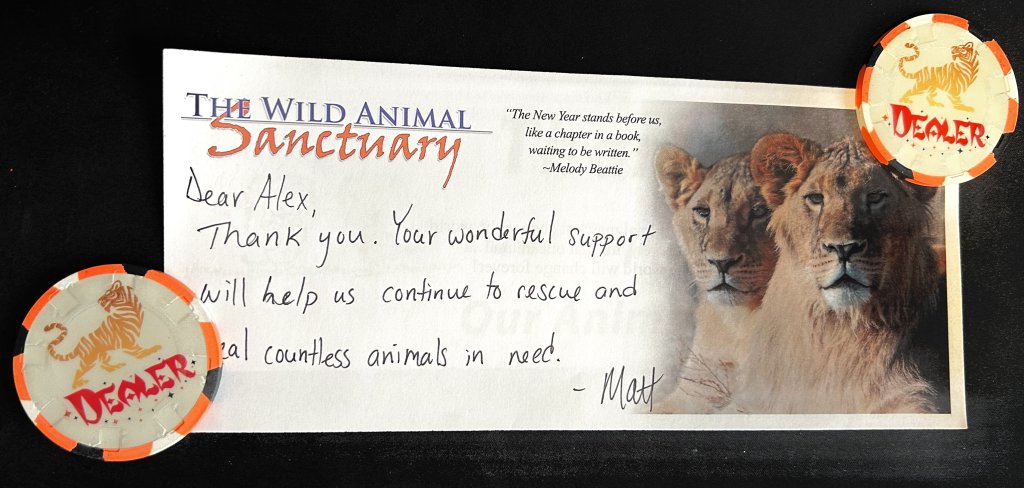 THE WILD ANIMAL
Sanctuary
"The New Year stands before us,
like a chapter in a book,
waiting to be written."
~Melody Beattie
Dear Alex,
Thank you. Your wonderful support
will help us continue to rescue and
countless animals in need.
- Matt
DEALER
DEALER